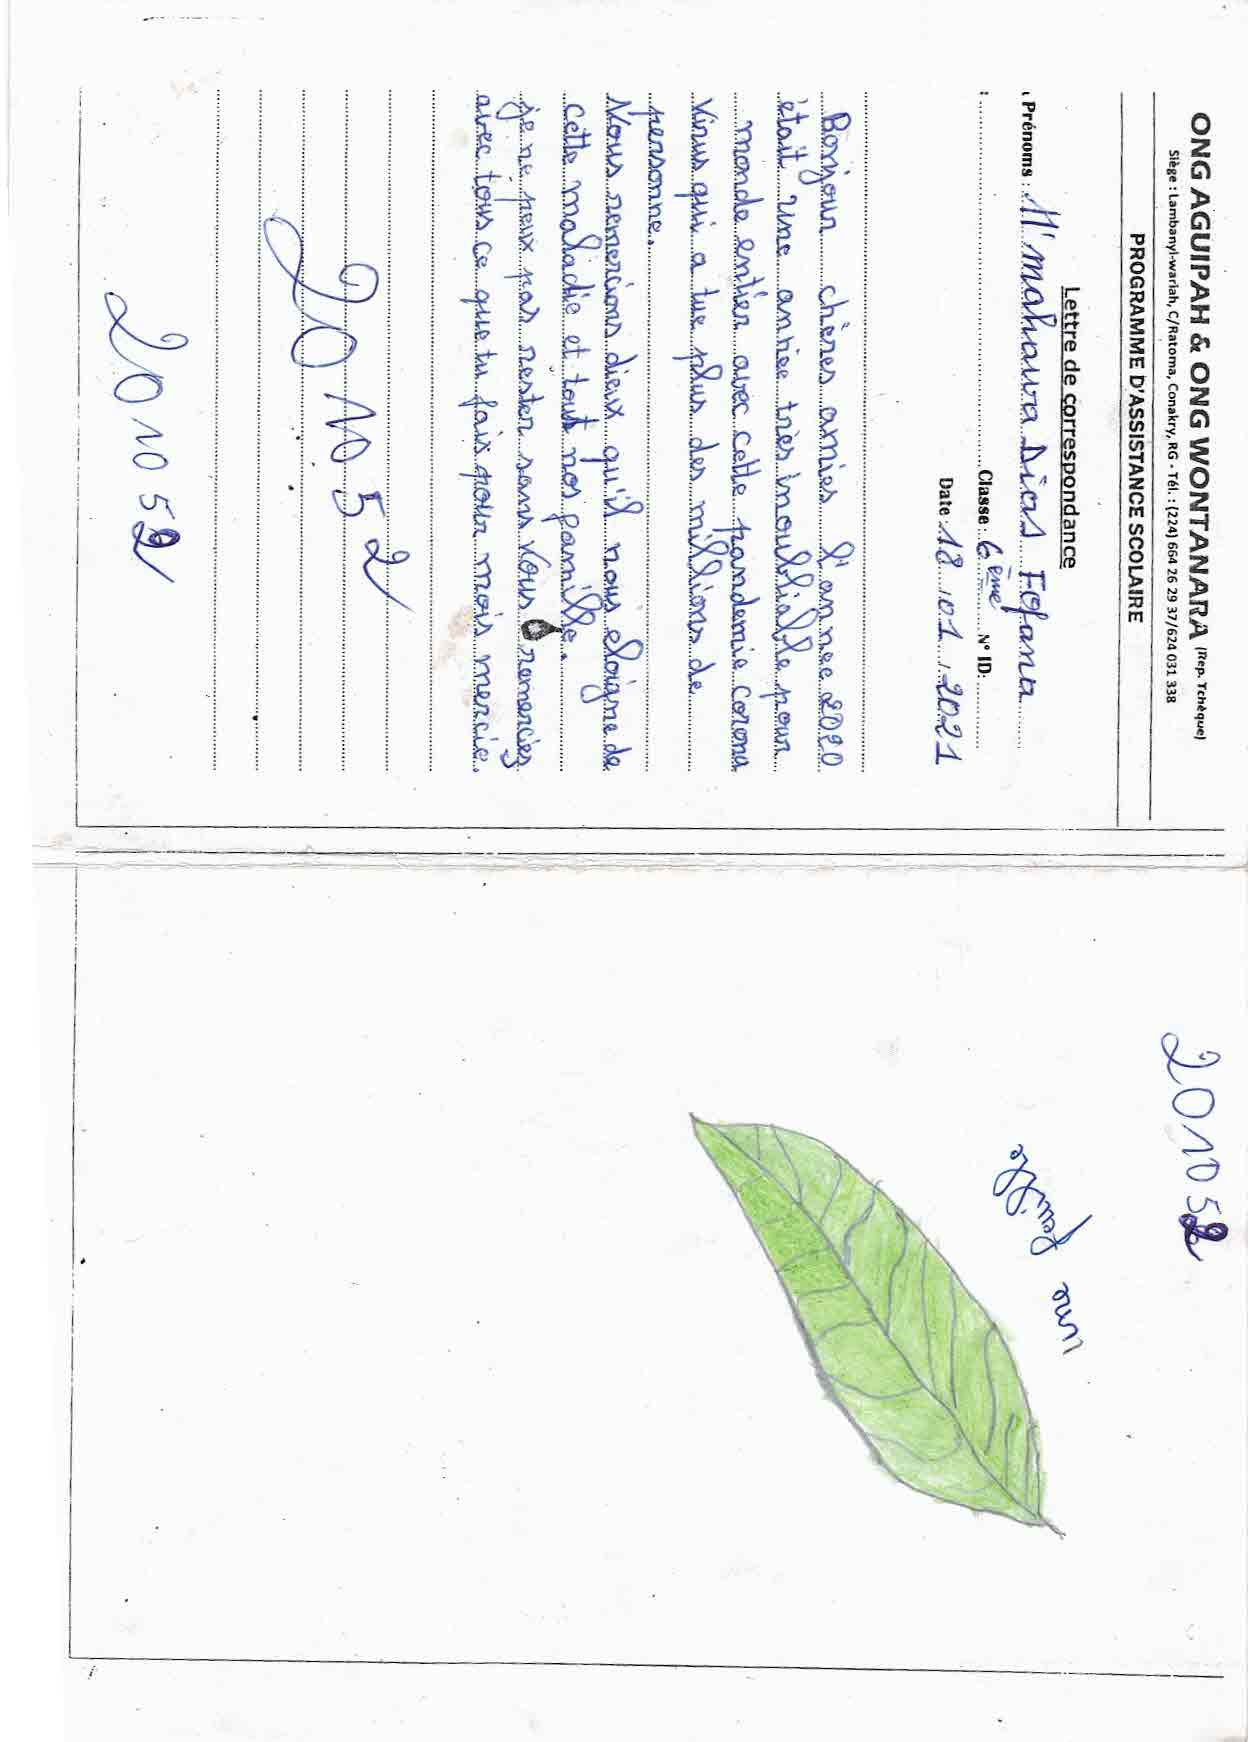 ONG AGUIPAH & ONG WONTANARA (Rep. Tchèque)
Siège : Lambanyi-wariah, C/Ratoma, Conakry, RG - Tél. : (224) 664 26 29 37/624 031 338
PROGRAMME D'ASSISTANCE SCOLAIRE
Lettre de correspondance
Prénoms : M'mahawa Dias Fofana
: Classe : 6ème N° ID:
Date 18.01.2021
Bonjour chères amies l'annee 2020
était une année très inoubliable pour
monde entier avec cette pandemie corona
virus qui a tue plus des millions de
personne.
Nous remercions dieux qu'il nous eloigne de
cette maladie et tout nos famille.
je ne peux pas rester sans vous remercies
avec tous ce que tu fais pour mois mercie.
201052
201052
201052
une feuille